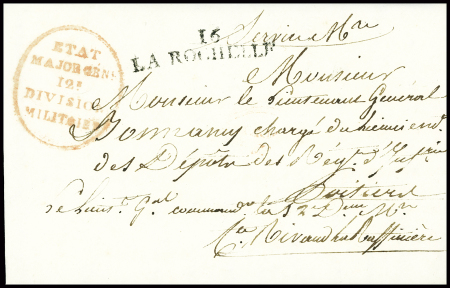 ETAT
MAJOR GÉN.
12e
DIVISION
MILITAIRE
16
LA ROCHELLE
Service Mre
Monsieur
Monsieur le Lieutenant Général
Bonnamy chargé du
des Dépôts des Régts d'Infrie
Poitiers
Le Lieut. Gal command la 12e Don Mre
Cte Rivaud la Raffinière